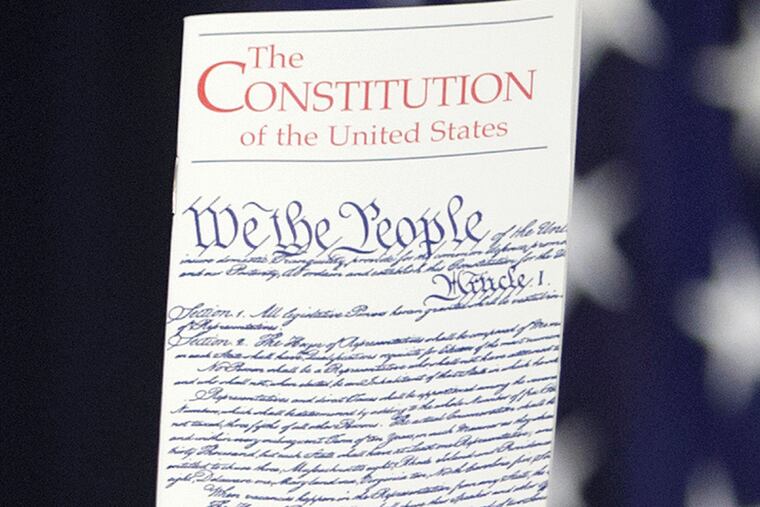 The
CONSTITUTION
of the United States
We the People of the Uni
insure domestic Tranquility, provide for the common defence, promo
and our Posterity, do ordain and establish this Constitution for the U
Article I.
Section 1. All legislative Powers herein granted shall be vested in a
of Representatives.
Section 2. The House of Representatives shall be composed of Mem
in each State shall have Qualifications requisite for Electors of the most numerou
No Person shall be a Representative who shall not have attained to
and who shall not, when elected, be an Inhabitant of that State in which he sha
Representatives and direct Taxes shall be apportioned among the sever
Numbers, which shall be determined by adding to the whole Number of free Per
not taxed, three fifths of all other Persons. The actual Enumeration shall be
and within every subsequent Term of ten Years, in such Manner as they shall
thirty Thousand, but each State shall have at Least one Representative;
entitled to chuse three, Massachusetts eight, Rhode Island and Providence
eight, Delaware one, Maryland six, Virginia ten, North Carolina five,
When vacancies happen in the Representation from any State, the